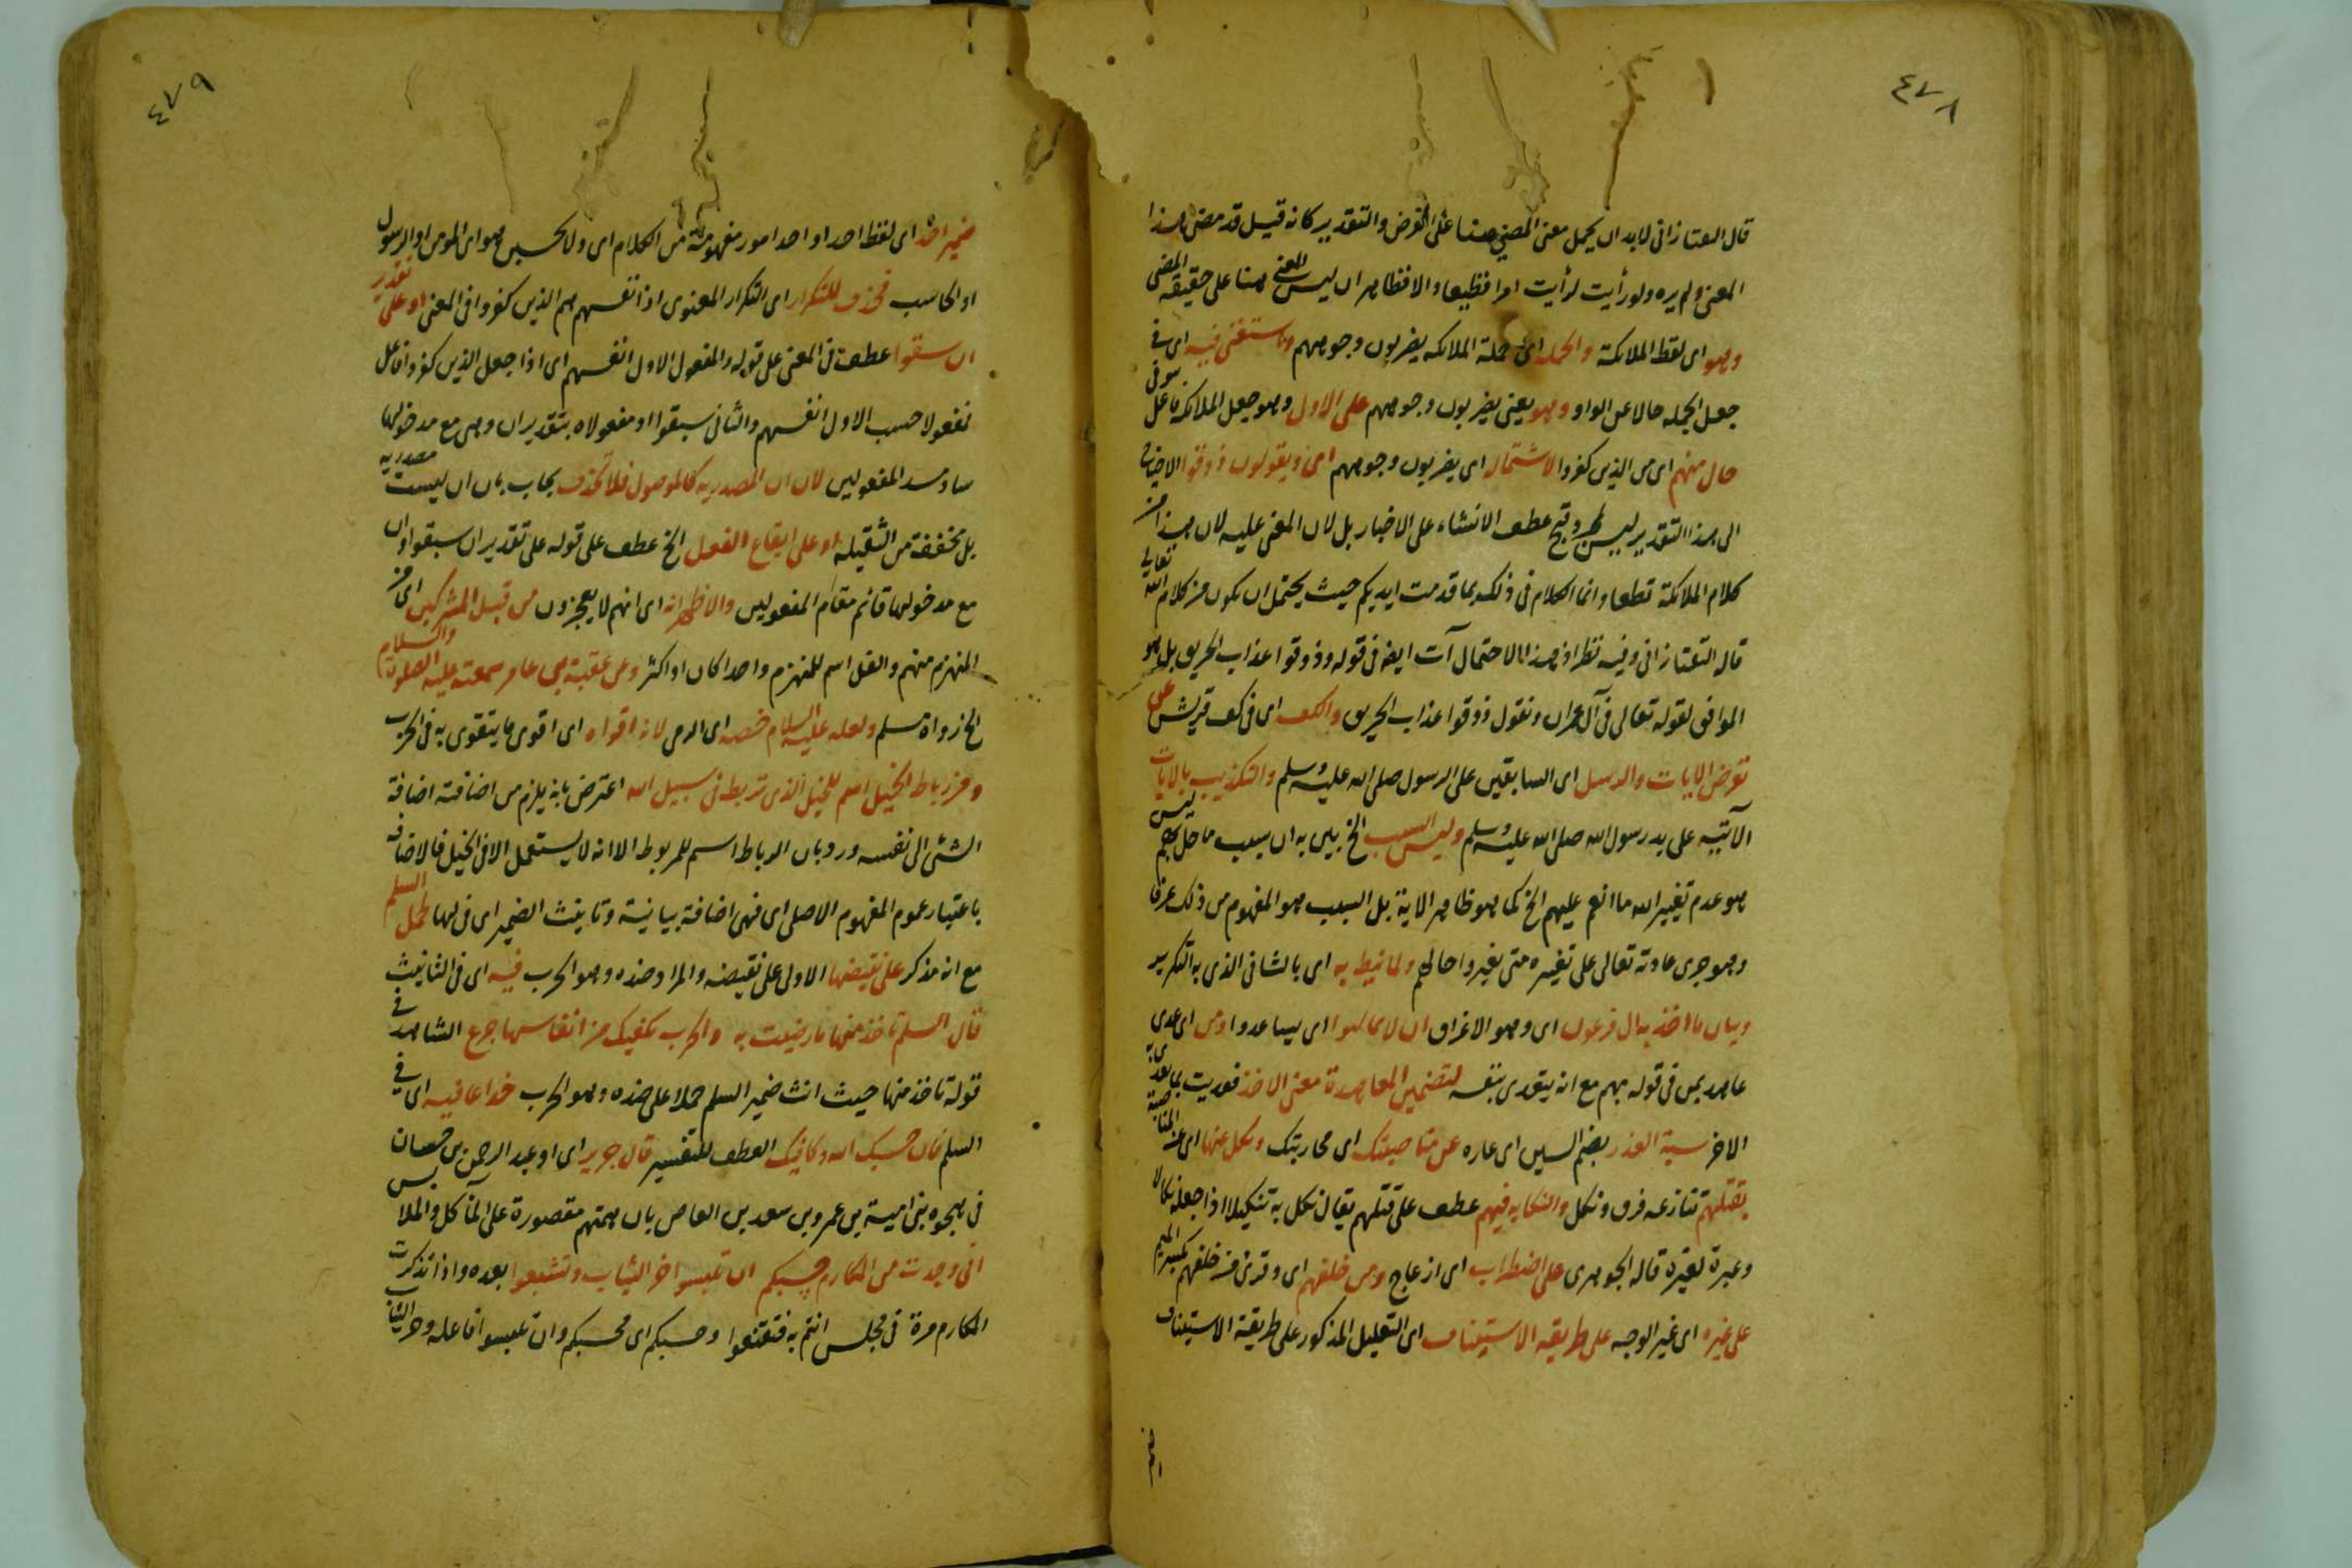 ٤٧٨
قال التفتازانى لابد ان يحمل معنى المضي هنا على الفرض والتقدير كانه قيل قد مضى هذا
المعنى ولم يره ولو رأيت لرأيت امرا فظيعا والا فظاهر ان ليس المعنى هنا على حقيقة المضى
وهو اى لفظ الملائكة والجملة اى جملة الملائكة يضربون وجوههم واستغنى فيه اى فى
جعل الجملة حالا عن الواو وهو يعنى يضربون وجوههم على الاول وهو جعل الملائكة فاعل
حال منهم اى من الذين كفروا لاشتماله اى يضربون وجوههم اى ويقولون ذوقوا الاحتياج
الى هذا التقدير ليس وقبح عطف الانشاء على الاخبار بل لان المعنى عليه لان هذا من
كلام الملائكة قطعا وانما الكلام فى ذلك بما قدمت ايديكم حيث يحتمل ان يكون من كلام الله تعالى
قاله التفتازانى وفيه نظر اذ هذا الاحتمال آت ايضا فى قوله وذوقوا عذاب الحريق بل هو
الموافق لقوله تعالى فى آل عمران ونقول ذوقوا عذاب الحريق والكف اى فى كف قريش على
تعرض الايات والرسل اى السابقين على الرسول صلى الله عليه وسلم والتكذيب بالايات
الآتية على يد رسول الله صلى الله عليه وسلم وليس السبب الخ يبين به ان سبب ما حل بهم ليس
هو عدم تغيير الله ما انعم عليهم الخ كما هو ظاهر الاية بل السبب هو المفهوم من ذلك عرفا
وهو جرى عادته تعالى على تغييره متى يغيروا حالهم ولما نيط به اى بالثانى الذى به التكرير
وبيان ما اخذ به ال فرعون اى وهو الاغراق ان لا يمالئوا اى يساعدوا ومن اى عدى
عاهد بمن فى قوله منهم مع انه يتعدى بنفسه لتضمين المعاهدة معنى الاخذ فعديت بما يعدى به
الاخر سبة الغدر بضم السين اى عاره عن مناصبتك اى محاربتك ونكل عنها اى عن المناصبة
بقتلهم تنازعه فرق ونكل والنكاية فيهم عطف على قتلهم يقال نكل به تنكيلا اذا جعله نكالا
وعبرة لغيره قاله الجوهرى على اضطراب اى ازعاج ومن خلفهم اى وقرئ من خلفهم بكسر الميم
على غيره اى غير الوجه على طريقة الاستيناف اى التعليل المذكور على طريقة الاستيناف
٤٧٩
ضمير احد اى لفظ احد او احد امور مفهومة من الكلام اى ولا يحسبن هو اى المومن او الرسول
او الحاسب فحذف للتكرار اى التكرار المعنوى اذ انفسهم هم الذين كفروا فى المعنى او على تقدير
ان سبقوا عطف فى المعنى على قوله والمفعول الاول انفسهم اى اذا جعل الذين كفروا فاعل
مفعولا حسب الاول انفسهم والثانى سبقوا او مفعولاه بتقدير ان وهى مع مدخولها
ساد مسد المفعولين لان ان المصدرية كالموصول فلا تحذف يجاب بان ان ليست مصدرية
بل مخففة من الثقيلة او على ايقاع الفعل الخ عطف على قوله على تقدير ان سبقوا وان
مع مدخولها قائم مقام المفعولين والاظهر انه اى انهم لا يعجزون من قبل المشركين اى من
المنهزم منهم والفل اسم للمنهزم واحدا كان او اكثر وعن عقبة بن عامر سمعته عليه الصلوة والسلام
الخ رواه مسلم ولعله عليه السلام خصه اى الرمى لانه اقواه اى اقوى ما يتقوى به فى الحرب
ومن رباط الخيل اسم للخيل الذى تربط فى سبيل الله اعترض بانه يلزم من اضافته اضافة
الشئ الى نفسه ورد بان الرباط اسم للمربوط الا انه لا يستعمل الا فى الخيل فالاضافة
باعتبار عموم المفهوم الاصلى اى فهى اضافة بيانية وتانيث الضمير اى فى لها لحمل السلم
مع انه مذكر على نقيضها الاولى على نقيضه والمراد ضده وهو الحرب فيه اى فى التانيث
قال السلم تاخذ منها ما رضيت به والحرب يكفيك من انفاسها جرع الشاهد فى
قوله تاخذ منها حيث انث ضمير السلم حملا على ضده وهو الحرب خداعا فيه اى فى
السلم فان حسبك الله وكافيك العطف للتفسير قال جرير اى او عبد الرحمن بن حسان
فى هجوه بنى امية بن عمرو بن سعد بن العاص بان همتهم مقصورة على المآكل والملابس
انى وجدت من المكارم حسبكم ان تلبسوا خز الثياب وتشبعوا بعده واذا تذكرت
المكارم مرة فى مجلس انتم به فتقنعوا وحسبكم اى محسبكم وان تلبسوا فاعله وخز الثياب